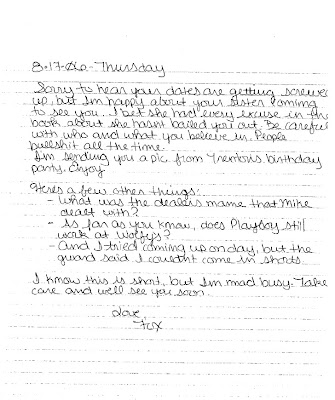 8-17-06-Thursday
Sorry to hear your dates are getting screwed
up, but I'm happy about your sister coming
to see you. I bet she had every excuse in the
book about she hasnt bailed you out. Be careful
with who and what you believe in. People
bullshit all the time.
I'm sending you a pic from Trenton's birthday
party. Enjoy
Heres a few other things:
- What was the dealers mame that Mike
dealt with?
- As far as you know, does Playboy still
work at Wolfy's?
- And I tried coming up onday, but the
guard said I couldnt come in shorts.
I know this is short, but I'm mad busy. Take
care and we'll see you soon.
Love,
Fox